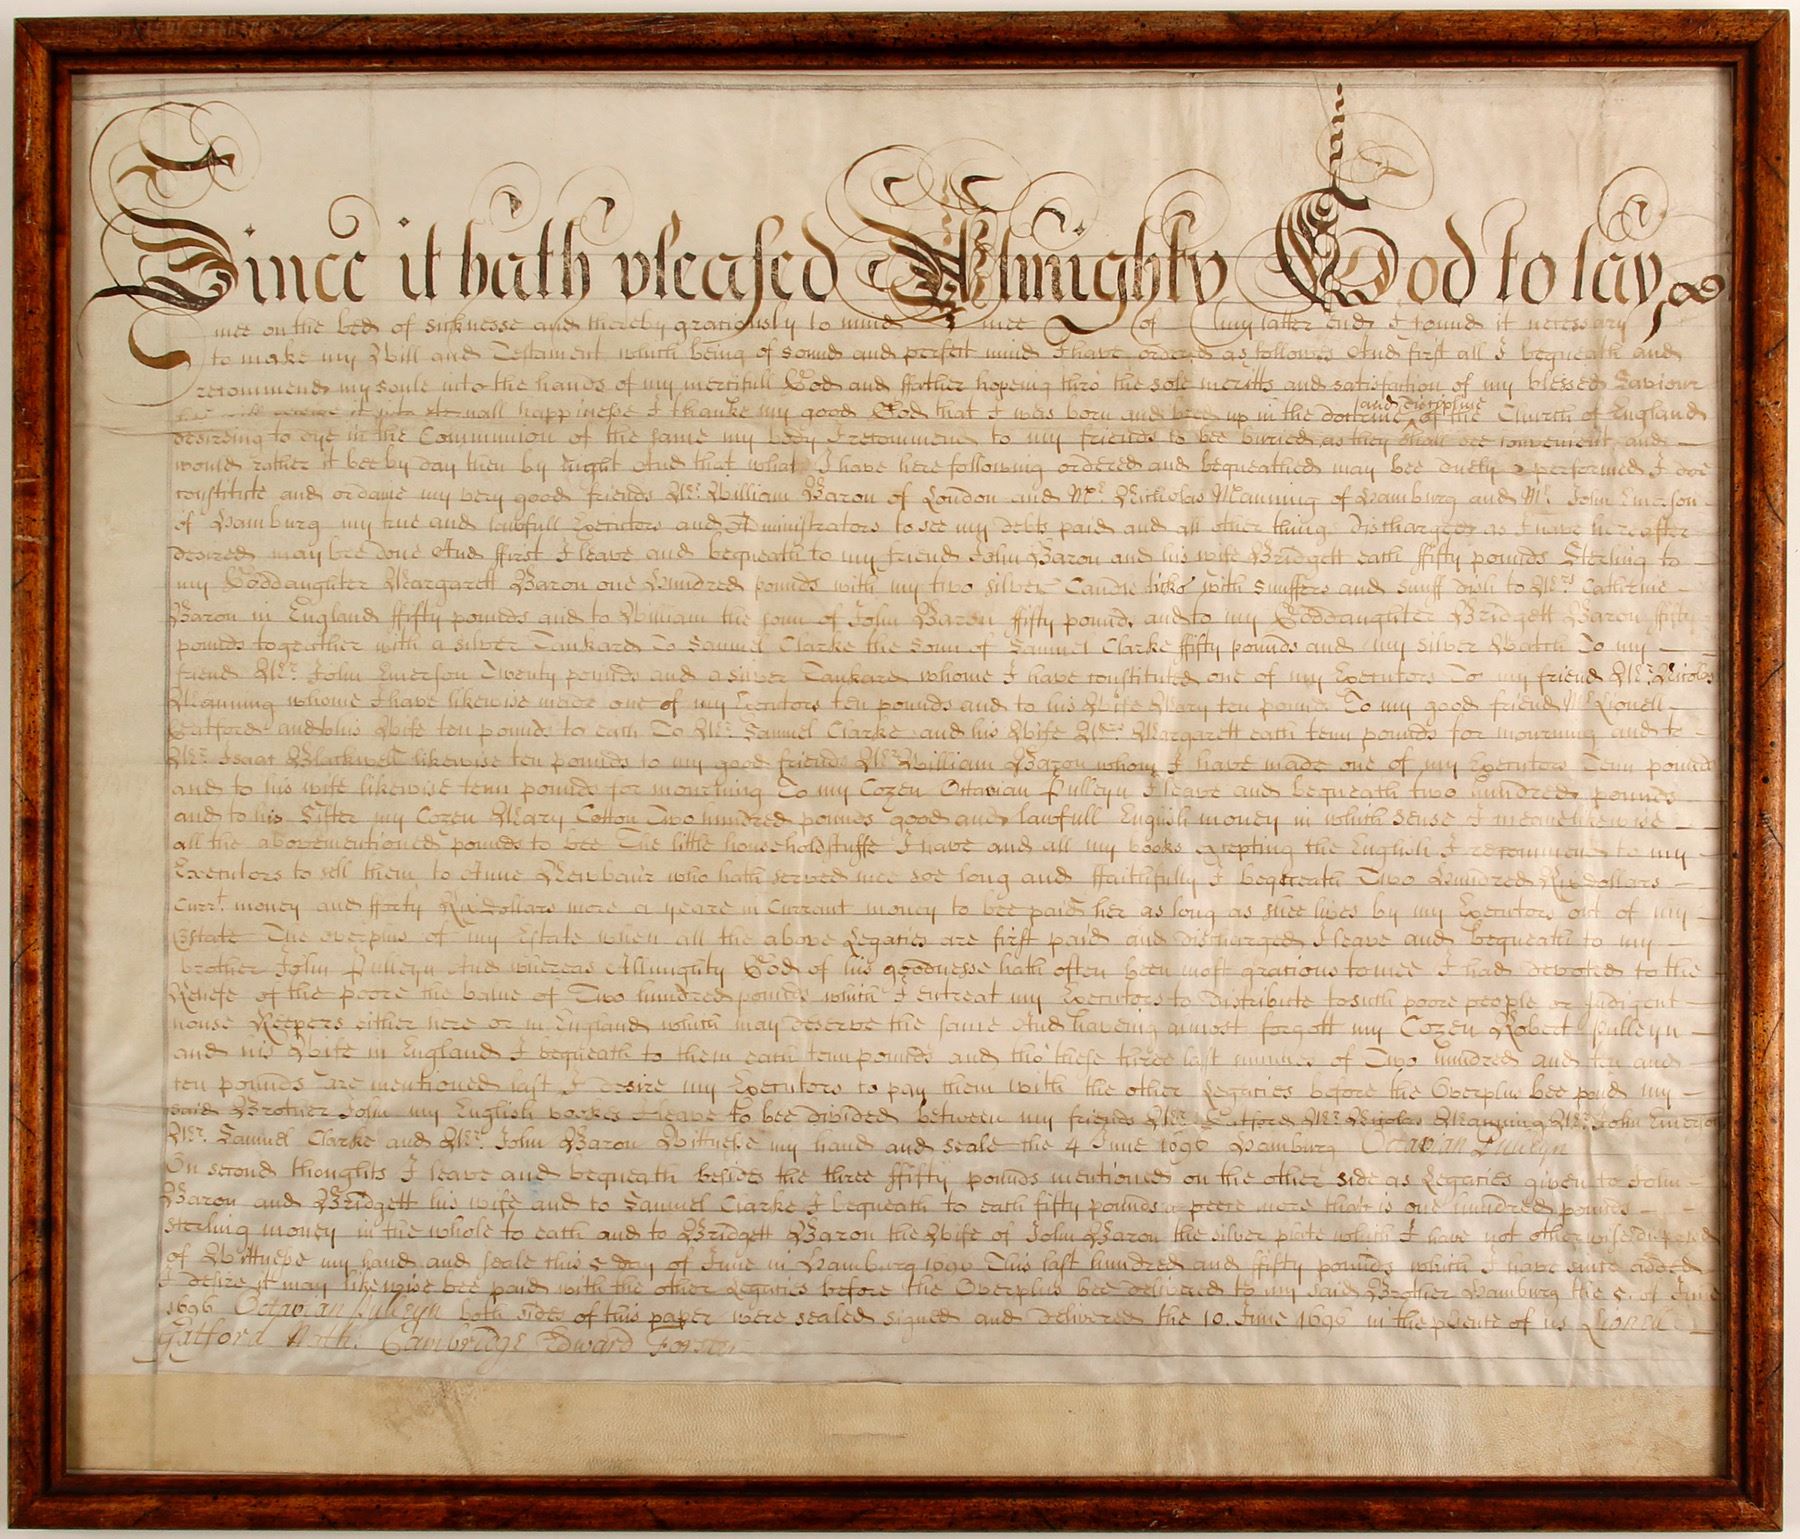 Since it hath pleased Almighty God to lay
mee on the bed of sicknesse and thereby graciously to mind mee of my latter end I found it necessary
to make my Will and Testament which being of sound and perfect mind I have ordered as followes And first all I bequeath and
recommend my soule into the hands of my mercifull God and ffather hopeing thro the sole meritts and satisfaction of my blessed Saviour
hee will receive it into happinesse I thanke my good God that I was born and bred up in the doctrine and Discipline of the Church of England
desireing to dye in the Communion of the same my body I recommend to my friends to bee buried as they shall see convenient and
would rather it bee by day then by Night And that what I have here following ordered and bequeathed may bee duely performed I doe
constitute and ordaine my very good friends Mr. William Baron of London and Mr. Nicholas Manning of Hamburg and Mr. John Emerson
of Hamburg my true and lawfull Executors and Administrators to see my debts paid and all other things Discharged as I have hereafter
desired may bee done And ffirst I leave and bequeath to my friend John Baron and his wife Bridgett each ffifty pounds Sterling to
my Goddaughter Margarett Baron one Hundred pounds with my two silver Candlesticks with snuffers and snuff dish to Mrs Catherine
Baron in England ffifty pounds and to William the sonn of John Baron ffifty pounds and to my Goddaughter Bridgett Baron ffifty
pounds together with a silver Tankard To Samuel Clarke the Sonn of Samuel Clarke ffifty pounds and my silver Watch To my
friend Mr. John Emerson Twenty pounds and a silver Tankard whome I have constituted one of my Executors To my friend Mr. Nicolas
Manning whome I have likewise made one of my Executors ten pounds and to his Wife Mary ten pounds To my good friend Mr Lionell
Gatford and his Wife ten pounds to each To Mr. Samuel Clarke and his Wife Mrs. Margarett each tenn pounds for mourning and to
Mr. Isaac Blackwell likewise ten pounds to my good friends Mr. William Baron whom I have made one of my Executors Tenn pounds
and to his wife likewise tenn pounds for mourning To my Cozen Octavian Pulleyn I leave and bequeath two hundred pounds
and to his Sister my Cozen Mary Cotton Two hundred pounds good and lawfull English money in which sense I meane likewise
all the abovementioned pounds to bee The little household stuffe I have and all my books excepting the English I recommend to my
Executors to sell them to Anne who hath served mee soe long and ffaithfully I bequeath Two Hundred Rixdollars
Currt. money and fforty Rixdollars more a yeare in Currant money to bee paid her as long as shee lives by my Executors out of my
Estate The overplus of my Estate when all the above Legacies are first paid and Discharged I leave and bequeath to my
brother John Pulleyn And whereas Allmighty God of his goodnesse hath often been most gracious to mee I had devoted to the
Releife of the poore the value of Two hundred pounds which I entreat my Executors to Distribute to such poore people or indigent
house Keepers either here or in England which may deserve the same And haveing almost forgott my Cozen Robert Pulleyn
and his Wife in England I bequeath to them each tenn pounds and tho' these three last summes of Two hundred and ten and
ten pounds are mentioned last I desire my Executors to pay them with the other Legacies before the Overplus bee paid my
said Brother John my English bookes I leave to bee divided between my friends Mr. Gatford Mr. Nicolas Manning Mr. John Emerson
Mr. Samuel Clarke and Mr. John Baron Wittnesse my hand and seale the 4 June 1696 Hamburg Octavian Pulleyn
On second thoughts I leave and bequeath besides the three ffifty pounds mentioned on the other side as Legacies given to John
Baron and Bridgett his wife and to Samuel Clarke I bequeath to each fifty pounds a peece more that is one hundred pounds
sterling money in the whole to each and to Bridgett Baron the Wife of John Baron the silver plate which I have not otherwise disposed
of Wittnesse my hand and seale this 5 day of June in Hamburg 1696 This last hundred and ffifty pounds which I have since added
I desire it may likewise bee paid with the other Legacies before the Overplus bee delivered to my said Brother Hamburg the 5. of June
1696 Octavian Pulleyn both sides of this paper were sealed signed and Delivered the 10. June 1696 in the psente of us Lionell
Gatford Nath: Cambridge Edward Forster